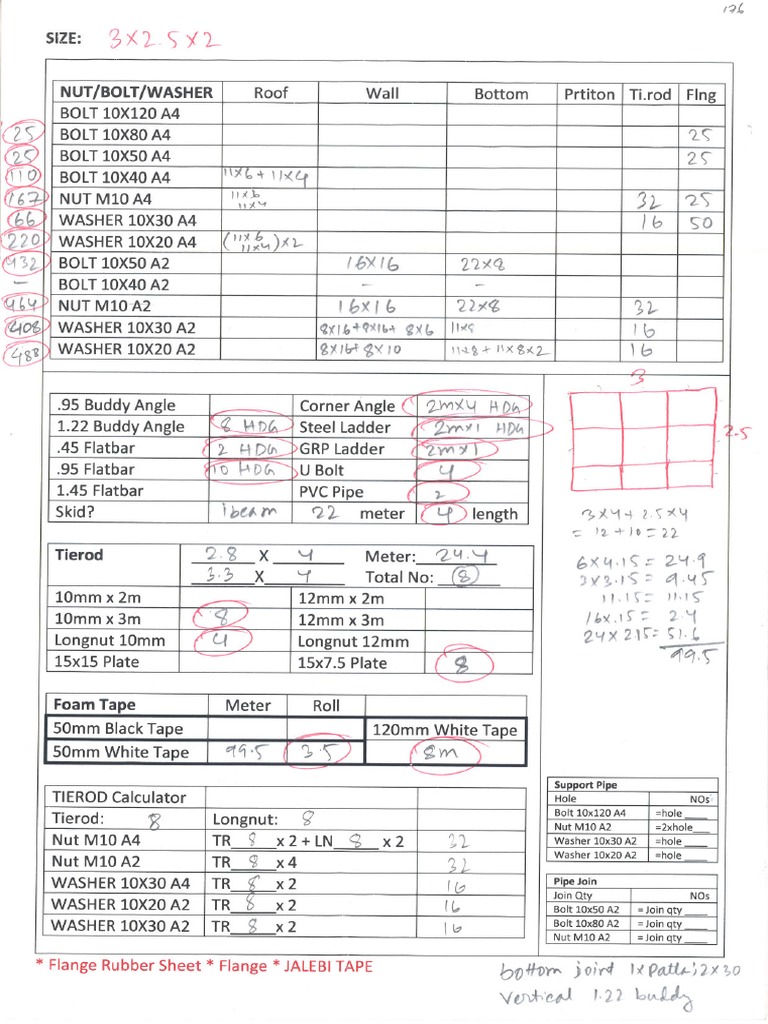 176
SIZE: 3X2.5X2
NUT/BOLT/WASHER Roof Wall Bottom Prtiton Ti.rod Flng
BOLT 10X120 A4
25 BOLT 10X80 A4 25
25 BOLT 10X50 A4 25
110 BOLT 10X40 A4 11x6+11x4
167 NUT M10 A4 11x6 11x4 32 25
66 WASHER 10X30 A4 16 50
220 WASHER 10X20 A4 (11x6 11x4)x2
432 BOLT 10X50 A2 16X16 22x8
- BOLT 10X40 A2 - -
464 NUT M10 A2 16X16 22x8 32
408 WASHER 10X30 A2 8x16+8x16+ 8x6 11x8 16
488 WASHER 10X20 A2 8x16+8x10 11x8+11x8x2 16
.95 Buddy Angle Corner Angle 2mx4 HDG
1.22 Buddy Angle 8 HDG Steel Ladder 2mx1 HDG
.45 Flatbar 2 HDG GRP Ladder 2mx1
.95 Flatbar 10 HDG U Bolt 4
1.45 Flatbar PVC Pipe 2
Skid? ibeam 22 meter 4 length
3
2.5
3x4+2.5x4
= 12+10=22
6x4.15=24.9
3x3.15=9.45
11.15=11.15
16x.15=2.4
24x2.15=51.6
99.5
Tierod 2.8 X 4 Meter: 24.4
3.3 X 4 Total No: 8
10mm x 2m 12mm x 2m
10mm x 3m 8 12mm x 3m
Longnut 10mm 4 Longnut 12mm
15x15 Plate 15x7.5 Plate 8
Foam Tape Meter Roll
50mm Black Tape 120mm White Tape
50mm White Tape 99.5 3.5 8m
TIEROD Calculator
Tierod: 8 Longnut: 8
Nut M10 A4 TR 8 x 2 + LN 8 x 2 32
Nut M10 A2 TR 8 x 4 32
WASHER 10X30 A4 TR 8 x 2 16
WASHER 10X20 A2 TR 8 x 2 16
WASHER 10X30 A2 TR 8 x 2 16
Support Pipe
Hole NOs
Bolt 10x120 A4 =hole ___
Nut M10 A2 =2xhole ___
Washer 10x30 A2 =hole ___
Washer 10x20 A2 =hole ___
Pipe Join
Join Qty NOs
Bolt 10x50 A2 = Join qty ____
Bolt 10x80 A2 = Join qty ____
Nut M10 A2 = Join qty ____
* Flange Rubber Sheet * Flange * JALEBI TAPE
bottom joint 1xPatta; 2x30
vertical 1.22 buddy